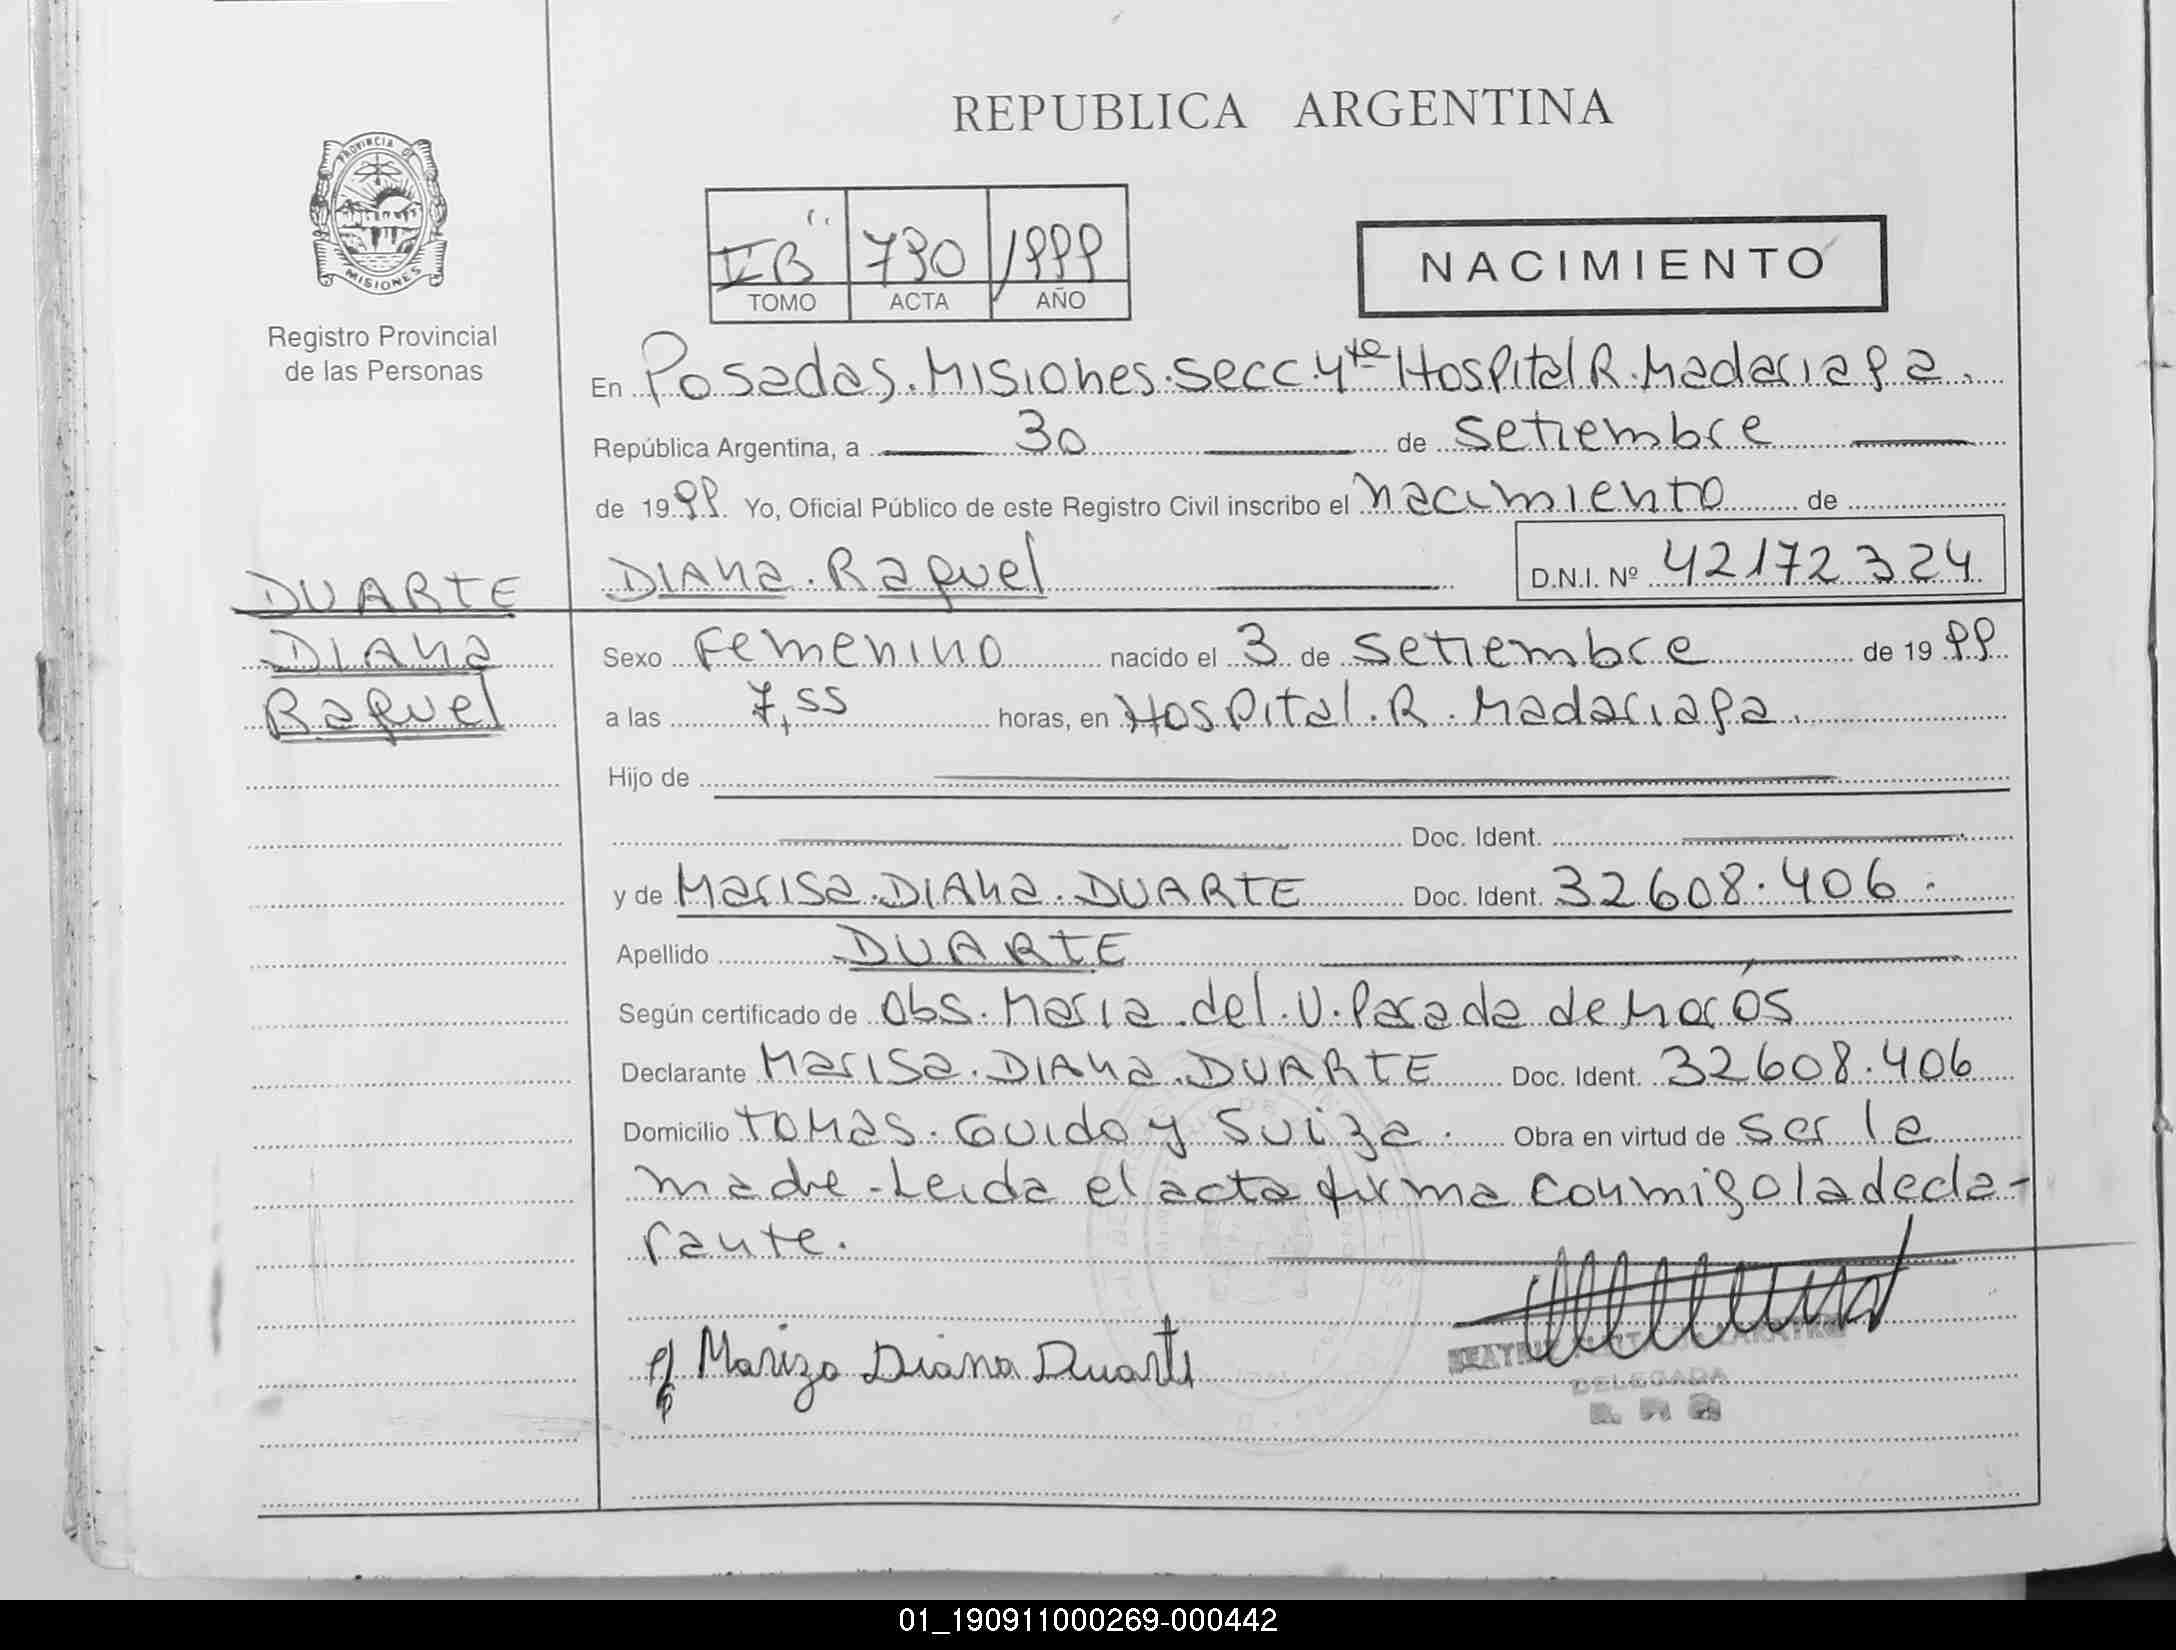 REPUBLICA ARGENTINA
PROVINCIA DE
MISIONES
Registro Provincial
de las Personas
II "B" 790 1999
TOMO ACTA AÑO
NACIMIENTO
En Posadas, Misiones. Secc. 4ta Hospital R. Madariaga.
República Argentina, a 30 de Setiembre
de 1999. Yo, Oficial Público de este Registro Civil inscribo el nacimiento de
DIANA. Raquel D.N.I. Nº 42172324
DUARTE
DIANA
Raquel
Sexo Femenino nacido el 3 de Setiembre de 1999
a las 7,55 horas, en Hospital. R. Madariaga.
Hijo de
Doc. Ident.
y de Marisa. DIANA. DUARTE Doc. Ident. 32608.406.
Apellido DUARTE
Según certificado de Obs. Maria del. V. Parada de
Declarante Marisa. DIANA. DUARTE Doc. Ident. 32608.406
Domicilio Tomas. Guido y Suiza. Obra en virtud de ser la
madre - Leida el acta firma conmigo la decla-
rante.
Mariza Diana Duarte
DELEGADA
01_190911000269-000442